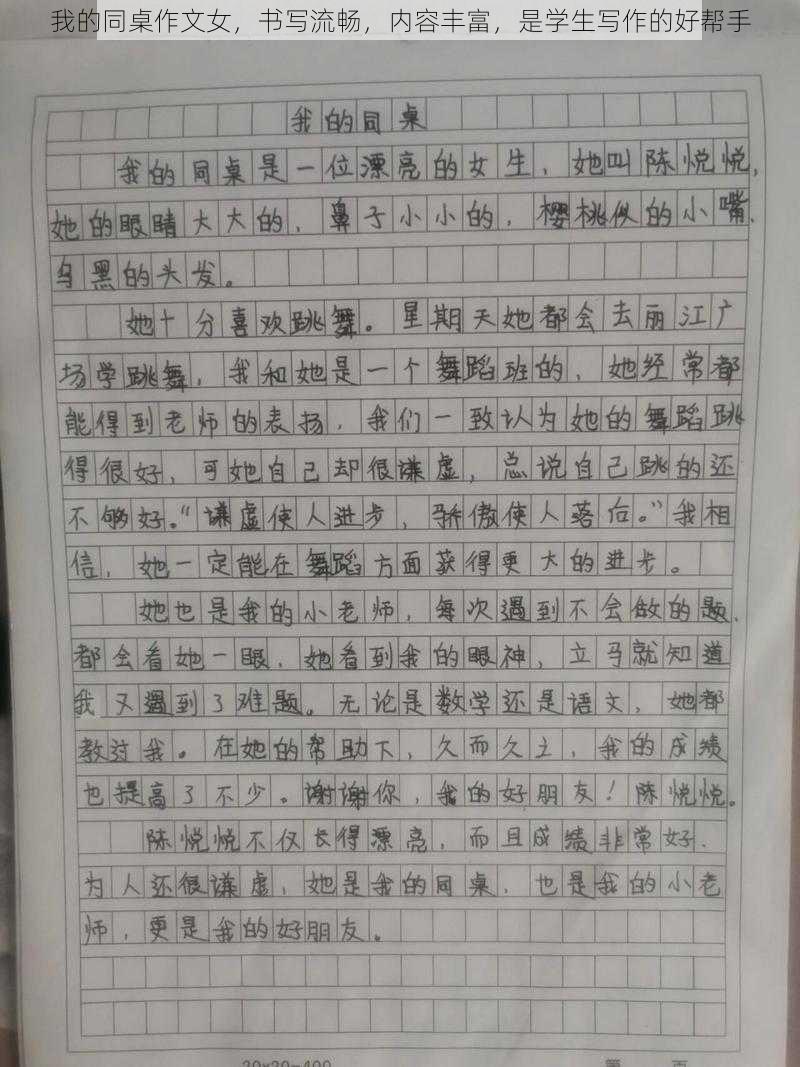 我的同桌作文女，书写流畅，内容丰富，是学生写作的好帮手
我的同桌
我的同桌是一位漂亮的女生，她叫陈悦悦，
她的眼睛大大的，鼻子小小的，樱桃似的小嘴，
乌黑的头发。
她十分喜欢跳舞。星期天她都会去丽江广
场学跳舞，我和她是一个舞蹈班的，她经常都
能得到老师的表扬，我们一致认为她的舞蹈跳
得很好，可她自己却很谦虚，总说自己跳的还
不够好。“谦虚使人进步，骄傲使人落后。”我相
信，她一定能在舞蹈方面获得更大的进步。
她也是我的小老师，每次遇到不会做的题，
都会看她一眼，她看到我的眼神，立马就知道
我又遇到了难题。无论是数学还是语文，她都
教过我。在她的帮助下，久而久之，我的成绩
也提高了不少。谢谢你，我的好朋友！陈悦悦。
陈悦悦不仅长得漂亮，而且成绩非常好，
为人还很谦虚，她是我的同桌，也是我的小老
师，更是我的好朋友。
20×20=400
第 页